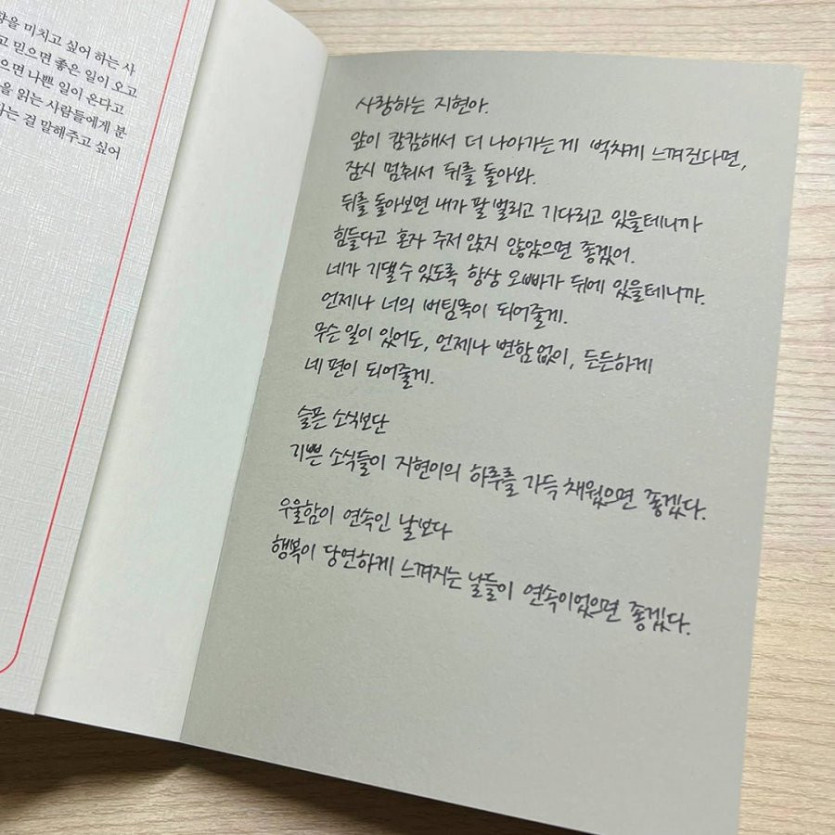 향을 미치고 싶어 하는 사
고 믿으면 좋은 일이 오고
으면 나쁜 일이 온다고
을 읽는 사람들에게 분
다는 걸 말해주고 싶어
사랑하는 지현아.
앞이 캄캄해서 더 나아가는 게 벅차게 느껴진다면,
잠시 멈춰서 뒤를 돌아봐.
뒤를 돌아보면 내가 팔 벌리고 기다리고 있을테니까
힘들다고 혼자 주저 앉지 않았으면 좋겠어.
네가 기댈 수 있도록 항상 오빠가 뒤에 있을테니까.
언제나 너의 버팀목이 되어줄게.
무슨 일이 있어도, 언제나 변함없이, 든든하게
네 편이 되어줄게.
슬픈 소식보단
기쁜 소식들이 지현이의 하루를 가득 채웠으면 좋겠다.
우울함이 연속인 날보다
행복이 당연하게 느껴지는 날들이 연속이었으면 좋겠다.